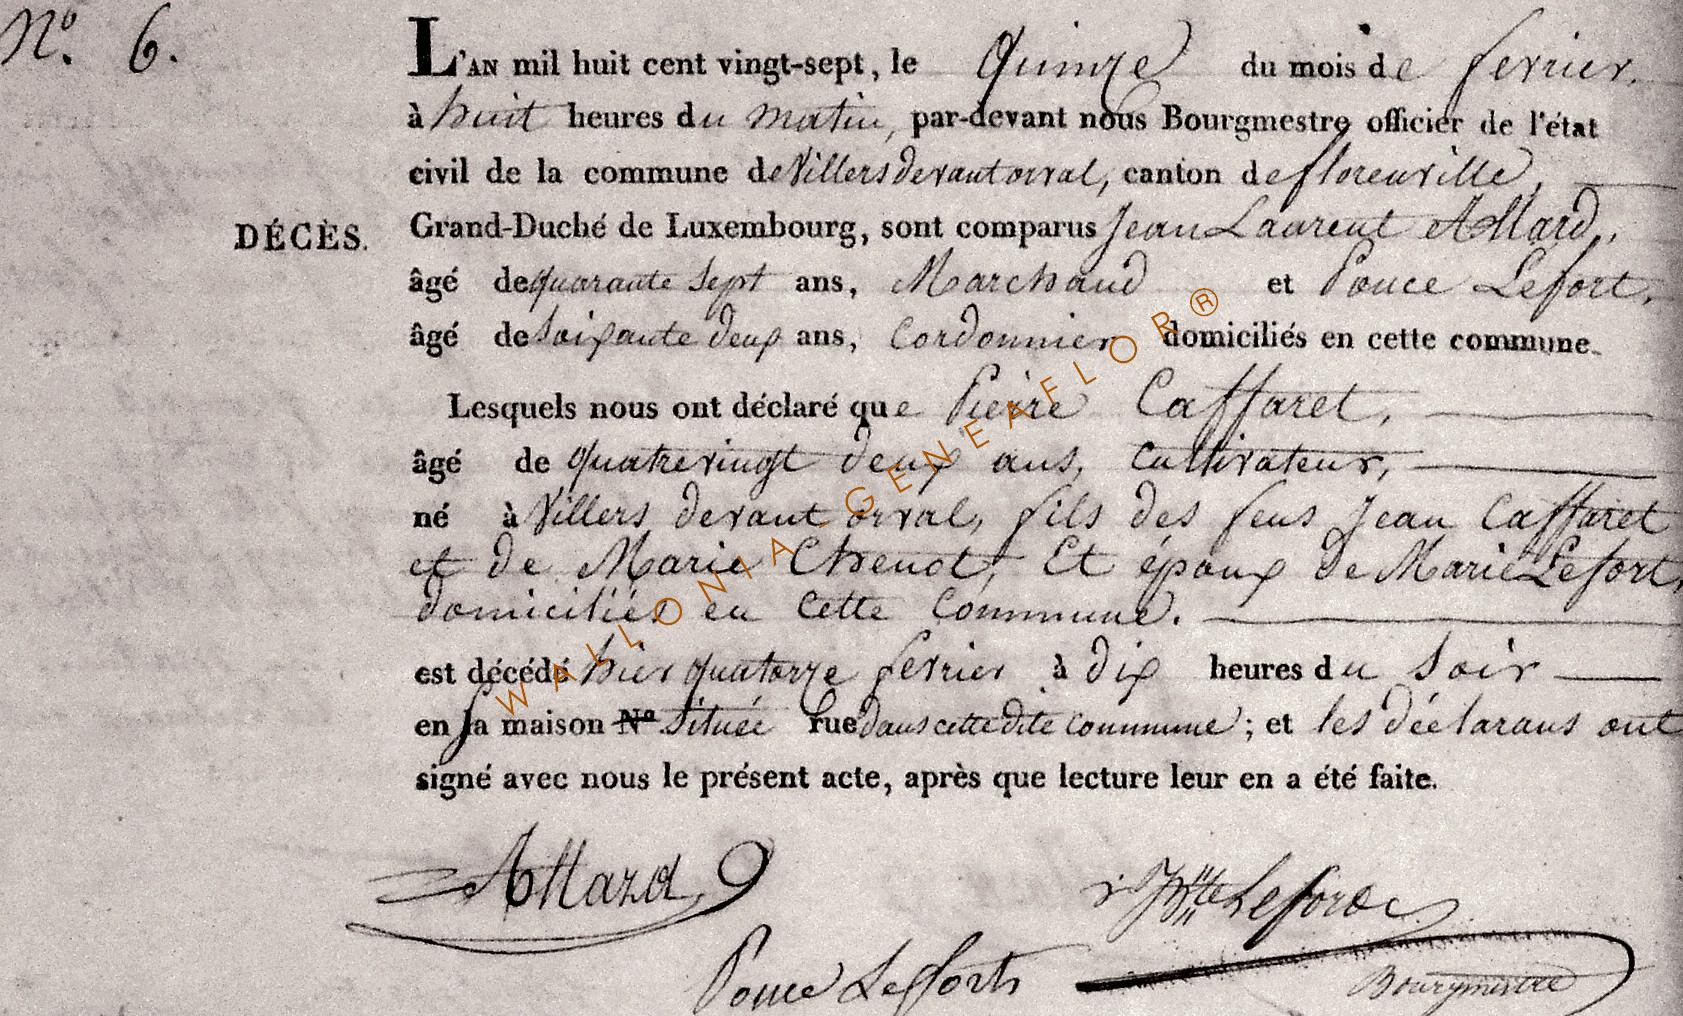 N° 6.
L'AN mil huit cent vingt-sept, le Quinze du mois de fevrier.
à huit heures du matin, par-devant nous Bourgmestre officier de l'état
civil de la commune de Villers devant orval, canton de florenville,
DÉCÈS.
Grand-Duché de Luxembourg, sont comparus Jean Laurent Allard,
âgé de quarante sept ans, Marchand et Ponce Lefort,
âgé de soixante deux ans, Cordonnier domiciliés en cette commune
Lesquels nous ont déclaré que Pierre Caffaret,
âgé de quatrevingt deux ans, Cultivateur,
né à Villers devant orval, fils des feus Jean Caffaret
et de Marie Chenot, Et époux de Marie Lefort,
domiciliés en cette Commune.
est décédé hier quatorze fevrier à dix heures du soir
en sa maison N° située rue dans cette dite commune ; et les déclarans ont
signé avec nous le présent acte, après que lecture leur en a été faite.
Allard
Ponce Lefort
Bourgmestre
WALLONIA GENEAFLOR®